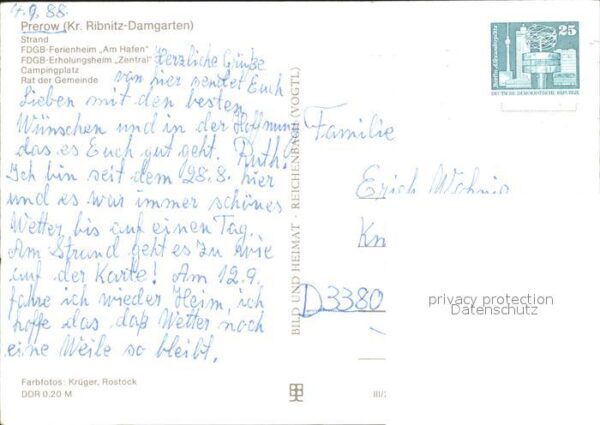 4.9.88.
Prerow (Kr. Ribnitz-Damgarten)
Strand
FDGB-Ferienheim „Am Hafen"
FDGB-Erholungsheim „Zentral"
Campingplatz
Rat der Gemeinde
Herzliche Grüße
von hier sendet Euch
Lieben mit den besten
Wünschen und in der Hoffnung
das es Euch gut geht. Ruth!
Ich bin seit dem 28.8. hier
und es war immer schönes
Wetter bis auf einen Tag.
Am Strand geht es zu wie
auf der Karte! Am 12.9.
fahre ich wieder Heim, ich
hoffe das daß Wetter noch
eine Weile so bleibt.
Farbfotos: Krüger, Rostock
DDR 0.20 M
BILD UND HEIMAT · REICHENBACH (VOGTL)
III/
25
DEUTSCHE DEMOKRATISCHE REPUBLIK
Familie
Erich
Kn
D3380
privacy protection
Datenschutz